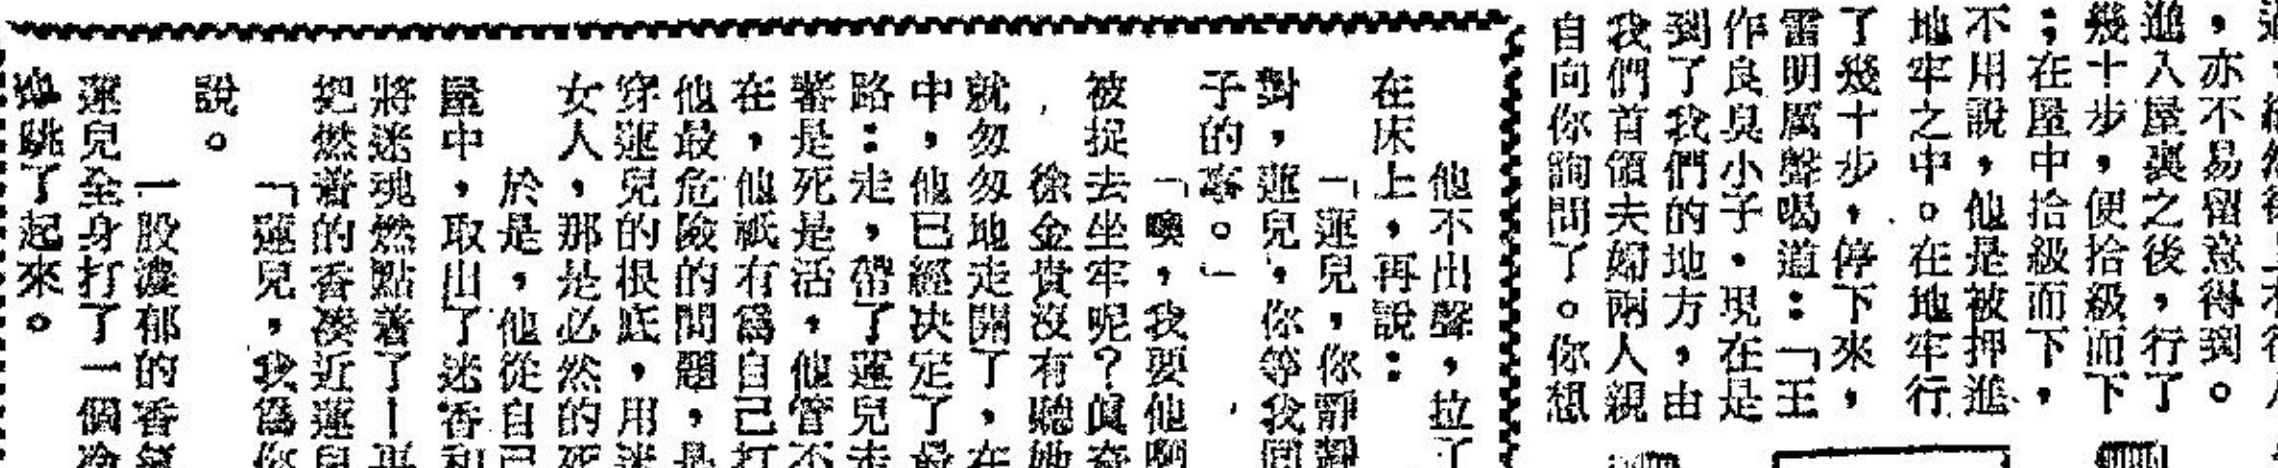 ，亦不易留意得到。
進入屋裏之後，行了
幾十步，便拾級而下
；在屋中拾級而下，
不用說，他是被押進
地牢之中。在地牢行
了幾十步，停下來，
雷明厲聲喝道：「王
作良臭小子，現在是
到了我們的地方，由
我們首領夫婦兩人親
自向你詢問了。你想
他不出聲，拉了
在床上，再說：
「蓮兒，你靜靜
對，蓮兒，你等我回
子的事。」
「噢，我要他
被捉去坐牢呢？眞奇
徐金貴沒有聽她
就匆匆地走開了，在
中，他已經决定了最
路：走，帶了蓮兒走
審是死是活，他管不
在，他祇有爲自己打
他最危險的問題，是
穿蓮兒的根底，用迷
女人，那是必然的死
於是，他從自己
屋中，取出了迷香和
將迷魂燃點着了—再
把燃着的香湊近蓮兒
「蓮兒，我爲你
說。
一股濃郁的香氣
蓮兒全身打了一個冷
跳了起來。